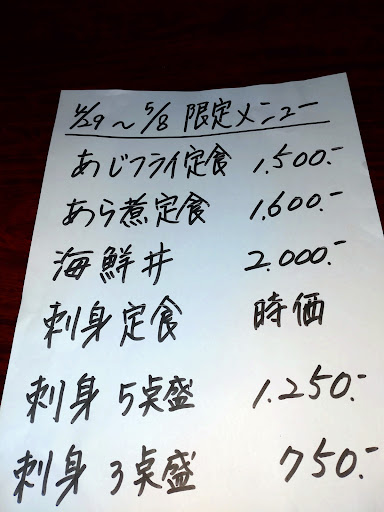 4/29～5/8 限定メニュー
あじフライ定食 1,500.-
あら煮定食 1,600.-
海鮮丼 2,000.-
刺身定食 時価
刺身 5点盛 1,250.-
刺身 3点盛 750.-